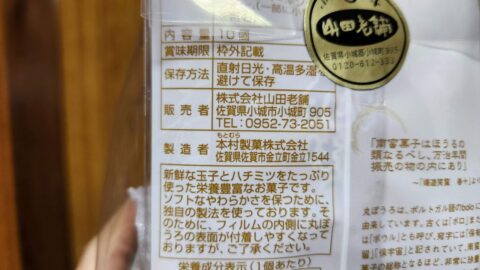 内容量 10個
賞味期限 枠外記載
保存方法 直射日光・高温多湿を
避けて保存
販売者 株式会社山田老舗
佐賀県小城市小城町905
TEL:0952-73-2051
製造者 本村製菓株式会社
もとむら
佐賀県佐賀市金立町金立1544
新鮮な玉子とハチミツをたっぷり
使った栄養豊富なお菓子です。
ソフトなやわらかさを保つために、
独自の製法を使っております。そ
のために、フィルムの内側に丸ぼ
うろの表面が付着しやすくなって
おりますが、ご了承ください。
栄養成分表示(1個あたり)
山田老舗
佐賀県小城市小城町905
「南蛮菓子はぼうるの
類なるべし、万治年間
販売の物の内にあり」
丸ぼうろは、ポルトガル語のbolo